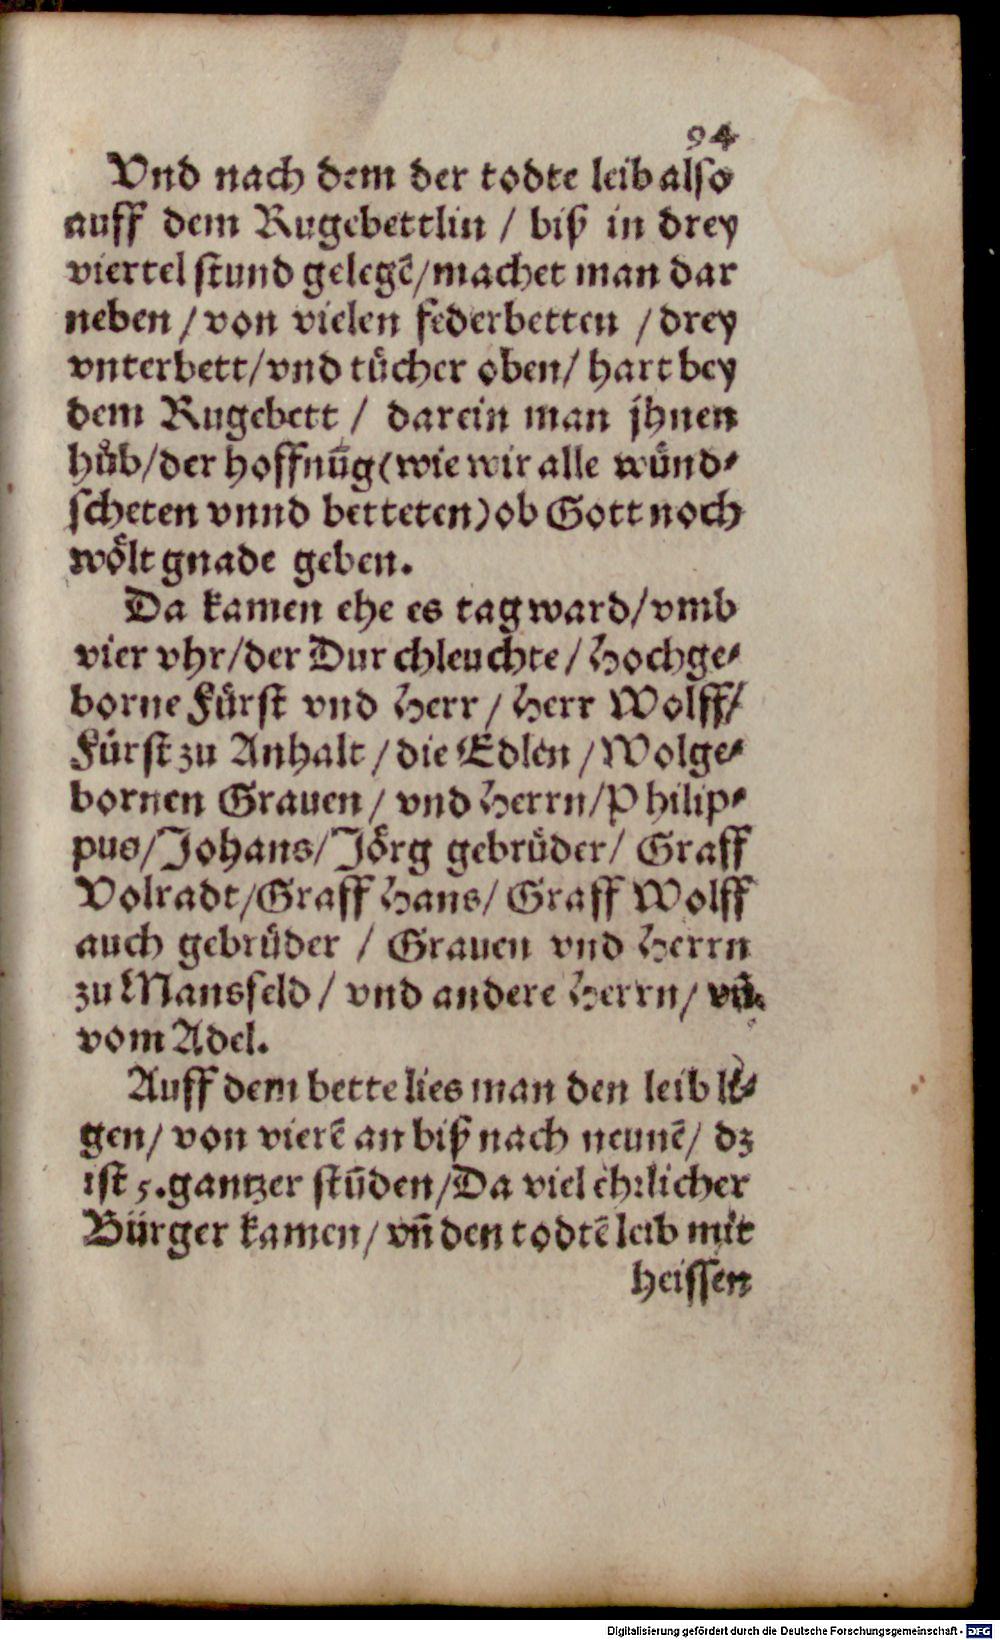 94
Vnd nach dem der todte leib also
auff dem Rugebettlin / biß in drey
viertel stund gelegē/machet man dar
neben / von vielen federbetten / drey
vnterbett/vnd tuͤcher oben/ hart bey
dem Rugebett / darein man jhnen
huͦb/der hoffnūg(wie wir alle wuͤnd⸗
scheten vnnd betteten)ob Gott noch
woͤlt gnade geben.
Da kamen ehe es tag ward/vmb
vier vhr/der Durchleuchte/Hochge⸗
borne Fuͤrst vnd Herr/ Herr Wolff/
Fuͤrst zu Anhalt /die Edlen /Wolge⸗
bornen Grauen/ vnd Herrn/Philip⸗
pus/Johans/Joͤrg gebruͤder/ Graff
Volradt/Graff Hans/ Graff Wolff
auch gebruͤder / Grauen vnd Herrn
zu Mansfeld/ vnd andere Herrn/ vñ
vom Adel.
Auff dem bette lies man den leib li⸗
gen/ von vierē an biß nach neunē/ dz
ist 5.gantzer stūden/Da viel ehrlicher
Buͤrger kamen/vñ den todtē leib mit
heissen
Digitalisierung gefördert durch die Deutsche Forschungsgemeinschaft - DFG